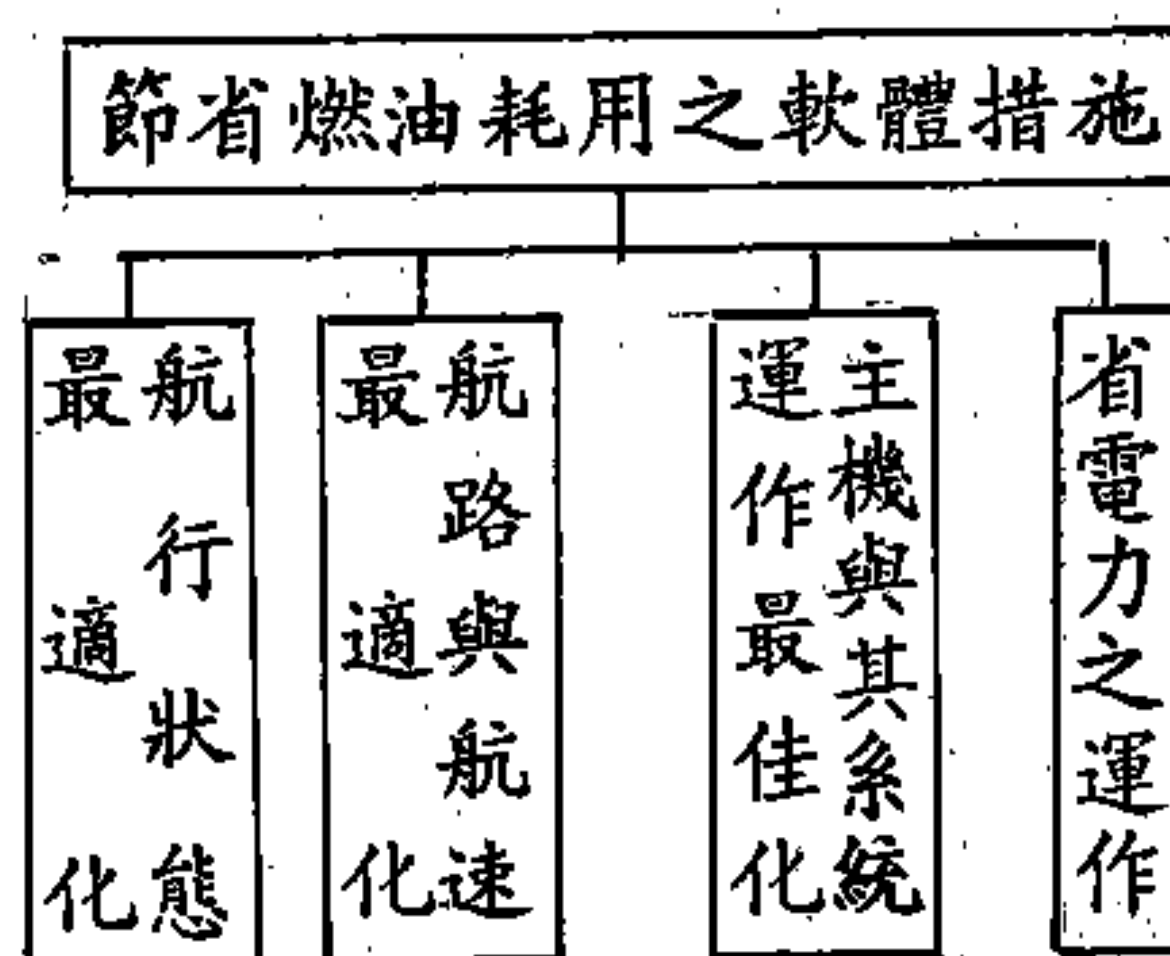 節省燃油耗用之軟體措施
航行狀態
最適化
航路與航速
最適化
主機與其系統
運作最佳化
省電力之運作